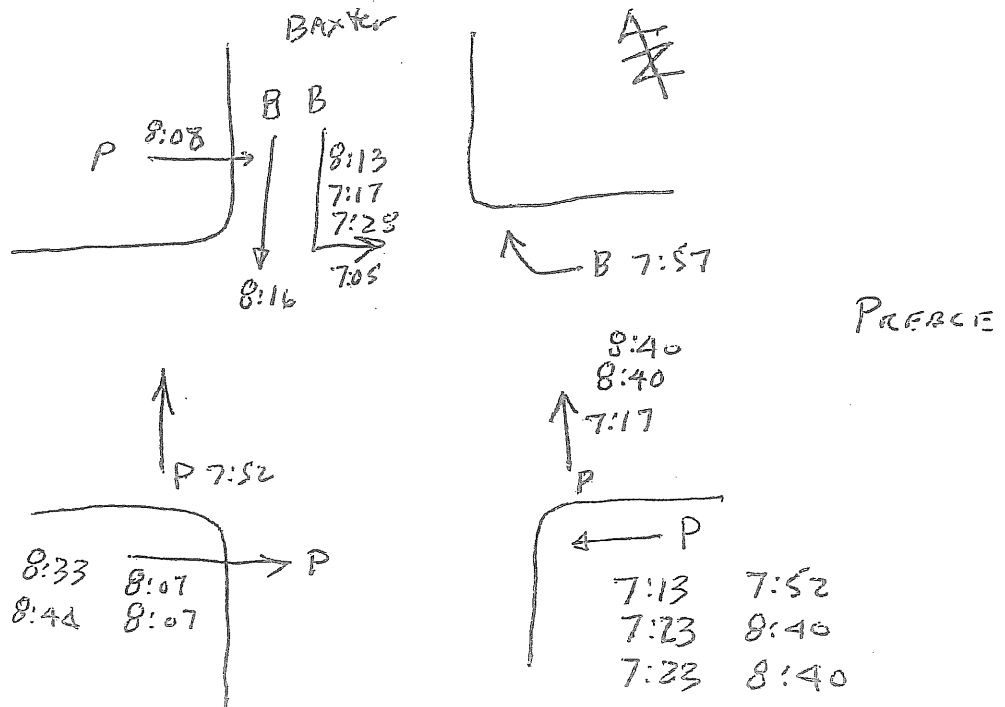 Baxter
N
B B
P 8:08
8:13
7:17
7:28
7:05
8:16
B 7:57
8:40
8:40
7:17
P 7:52
P
P
P
8:33 8:07
8:44 8:07
7:13 7:52
7:23 8:40
7:23 8:40